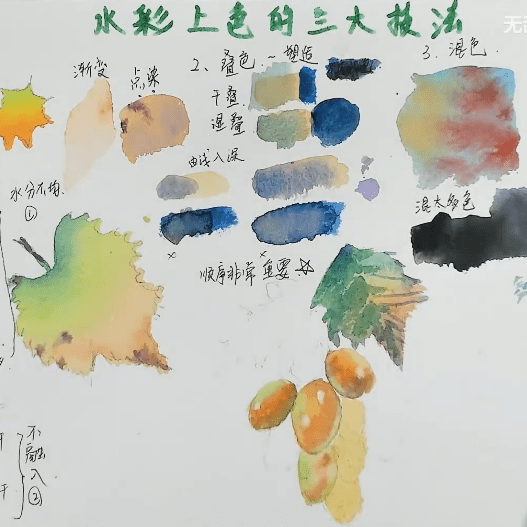 水彩上色的三大技法
无
渐变
点染
2、叠色~塑造
干叠
湿叠
由浅入深
3、混色
混太多色
水分不均
①
顺序非常重要☆
不
融
入
②
干